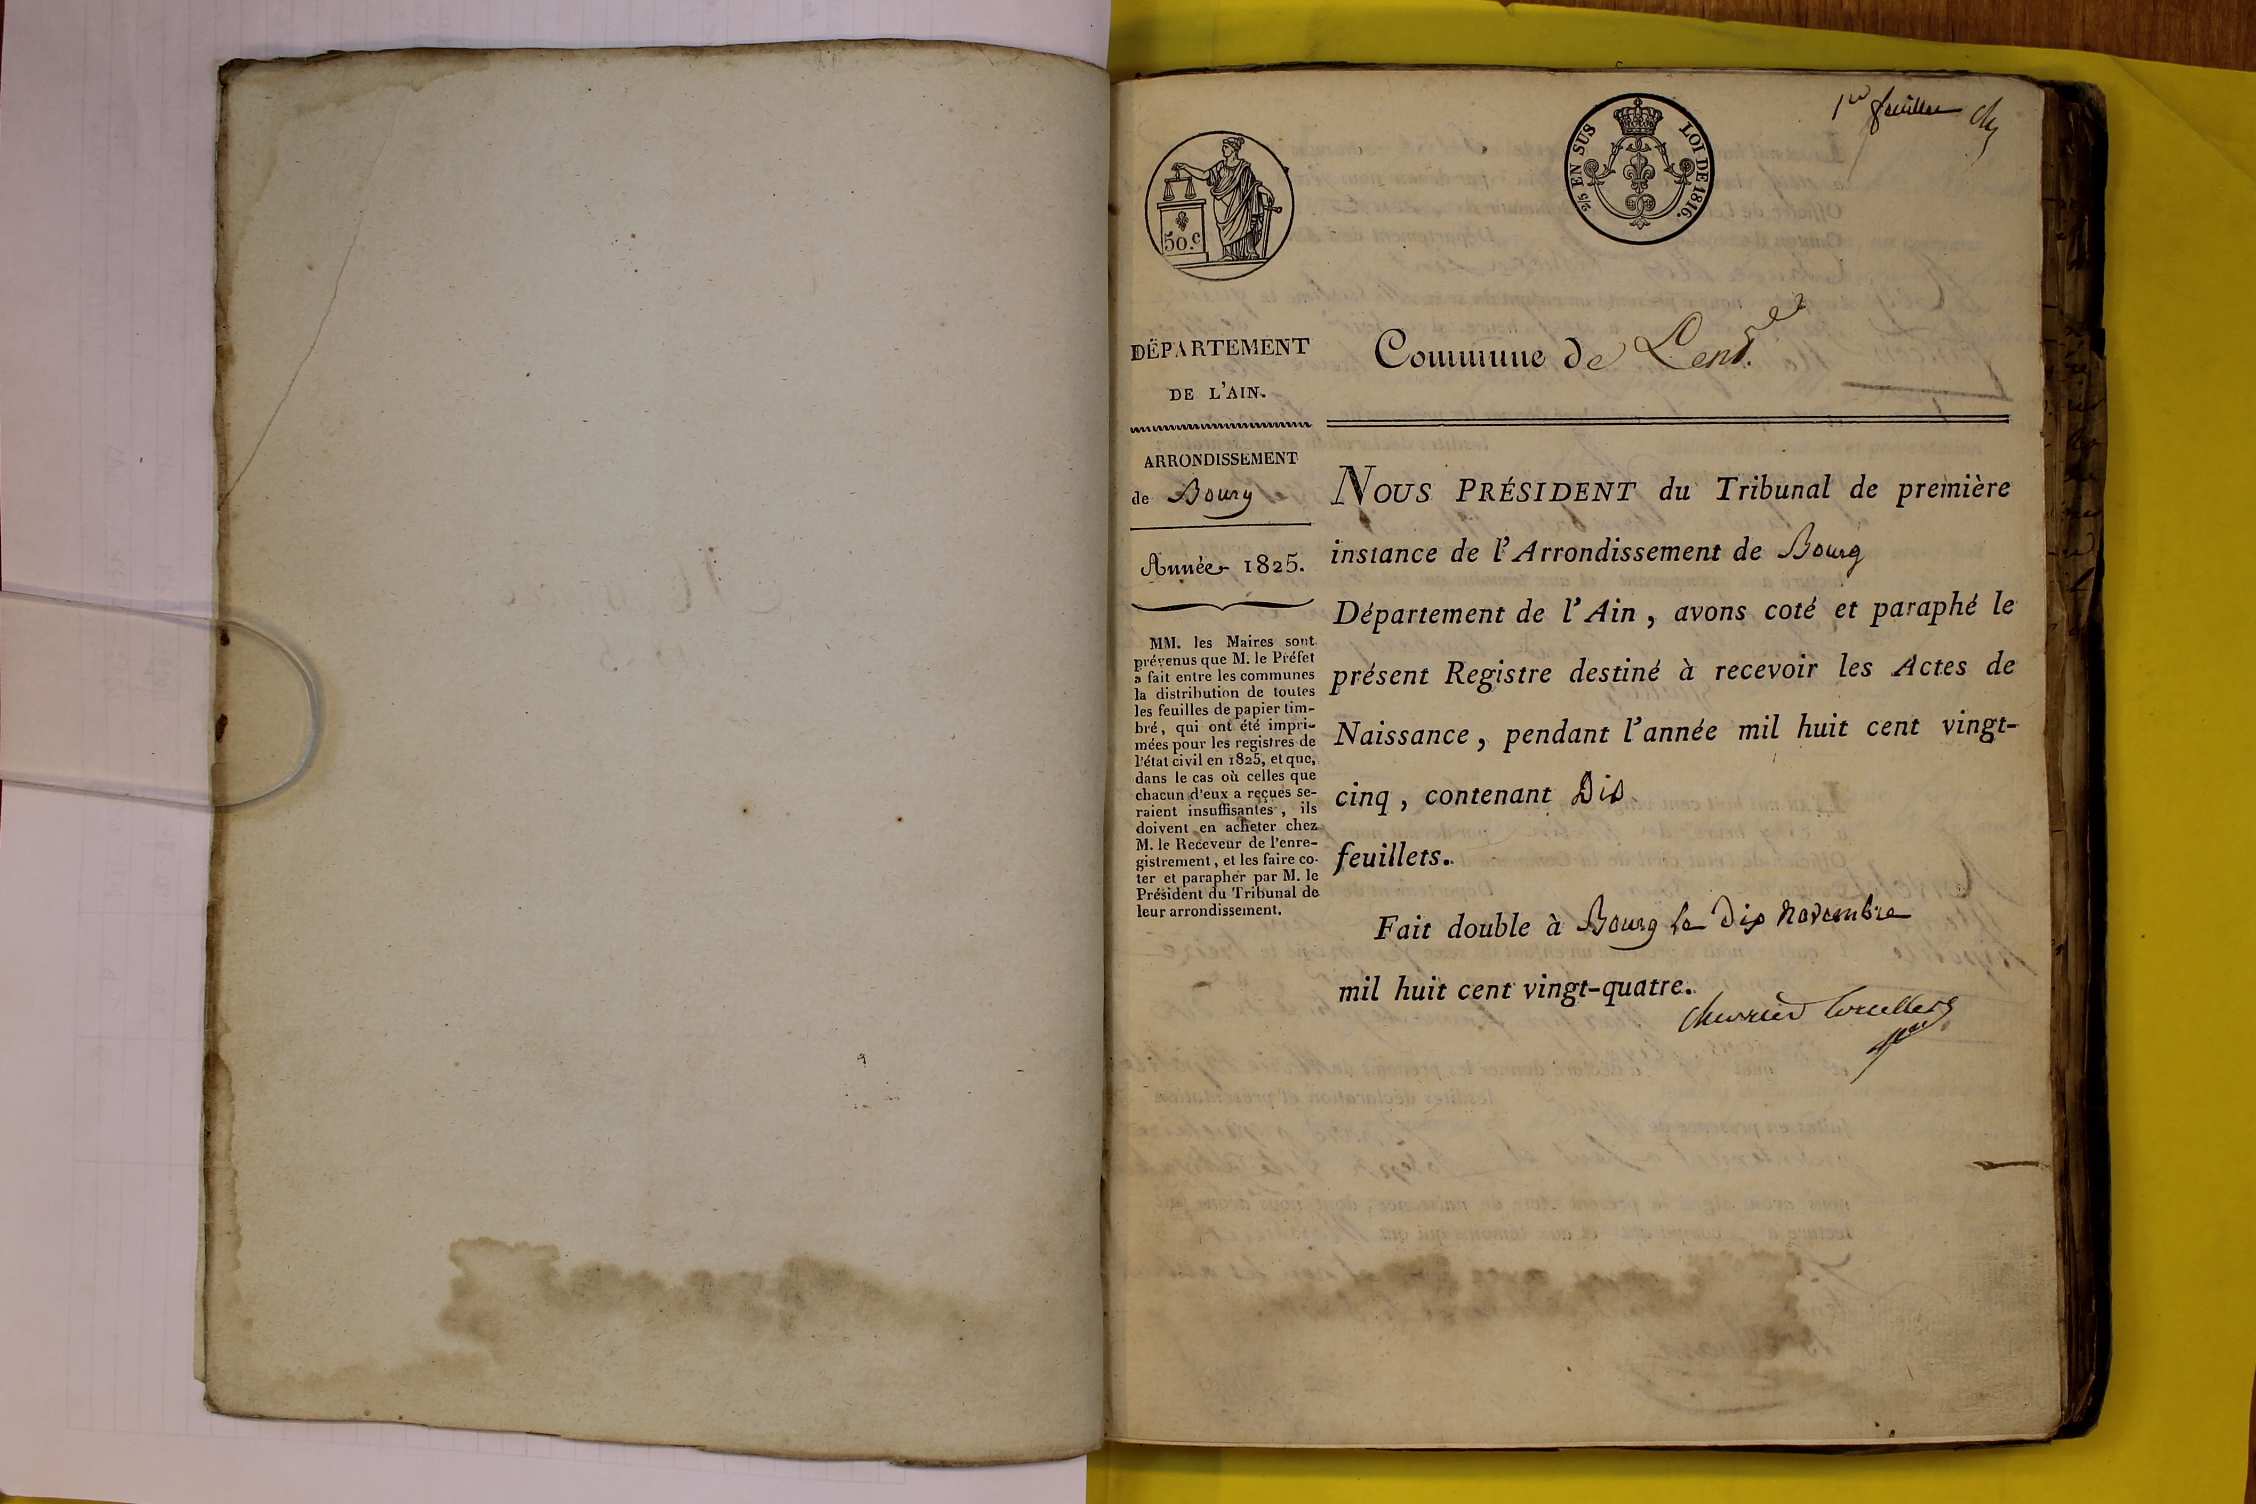 1er feuillet
2/5 EN SUS LOI DE 1816.
50.c
DÉPARTEMENT
DE L'AIN.
ARRONDISSEMENT
de Bourg
Année 1825.
MM. les Maires sont
prévenus que M. le Préfet
a fait entre les communes
la distribution de toutes
les feuilles de papier tim-
bré, qui ont été impri-
mées pour les registres de
l'état civil en 1825, et que,
dans le cas où celles que
chacun d'eux a reçues se-
raient insuffisantes, ils
doivent en acheter chez
M. le Receveur de l'enre-
gistrement, et les faire co-
ter et parapher par M. le
Président du Tribunal de
leur arrondissement.
Commune de
NOUS PRÉSIDENT du Tribunal de première
instance de l'Arrondissement de Bourg
Département de l'Ain, avons coté et paraphé le
présent Registre destiné à recevoir les Actes de
Naissance, pendant l'année mil huit cent vingt-
cinq, contenant Dix
feuillets.
Fait double à Bourg le Dix novembre
mil huit cent vingt-quatre.